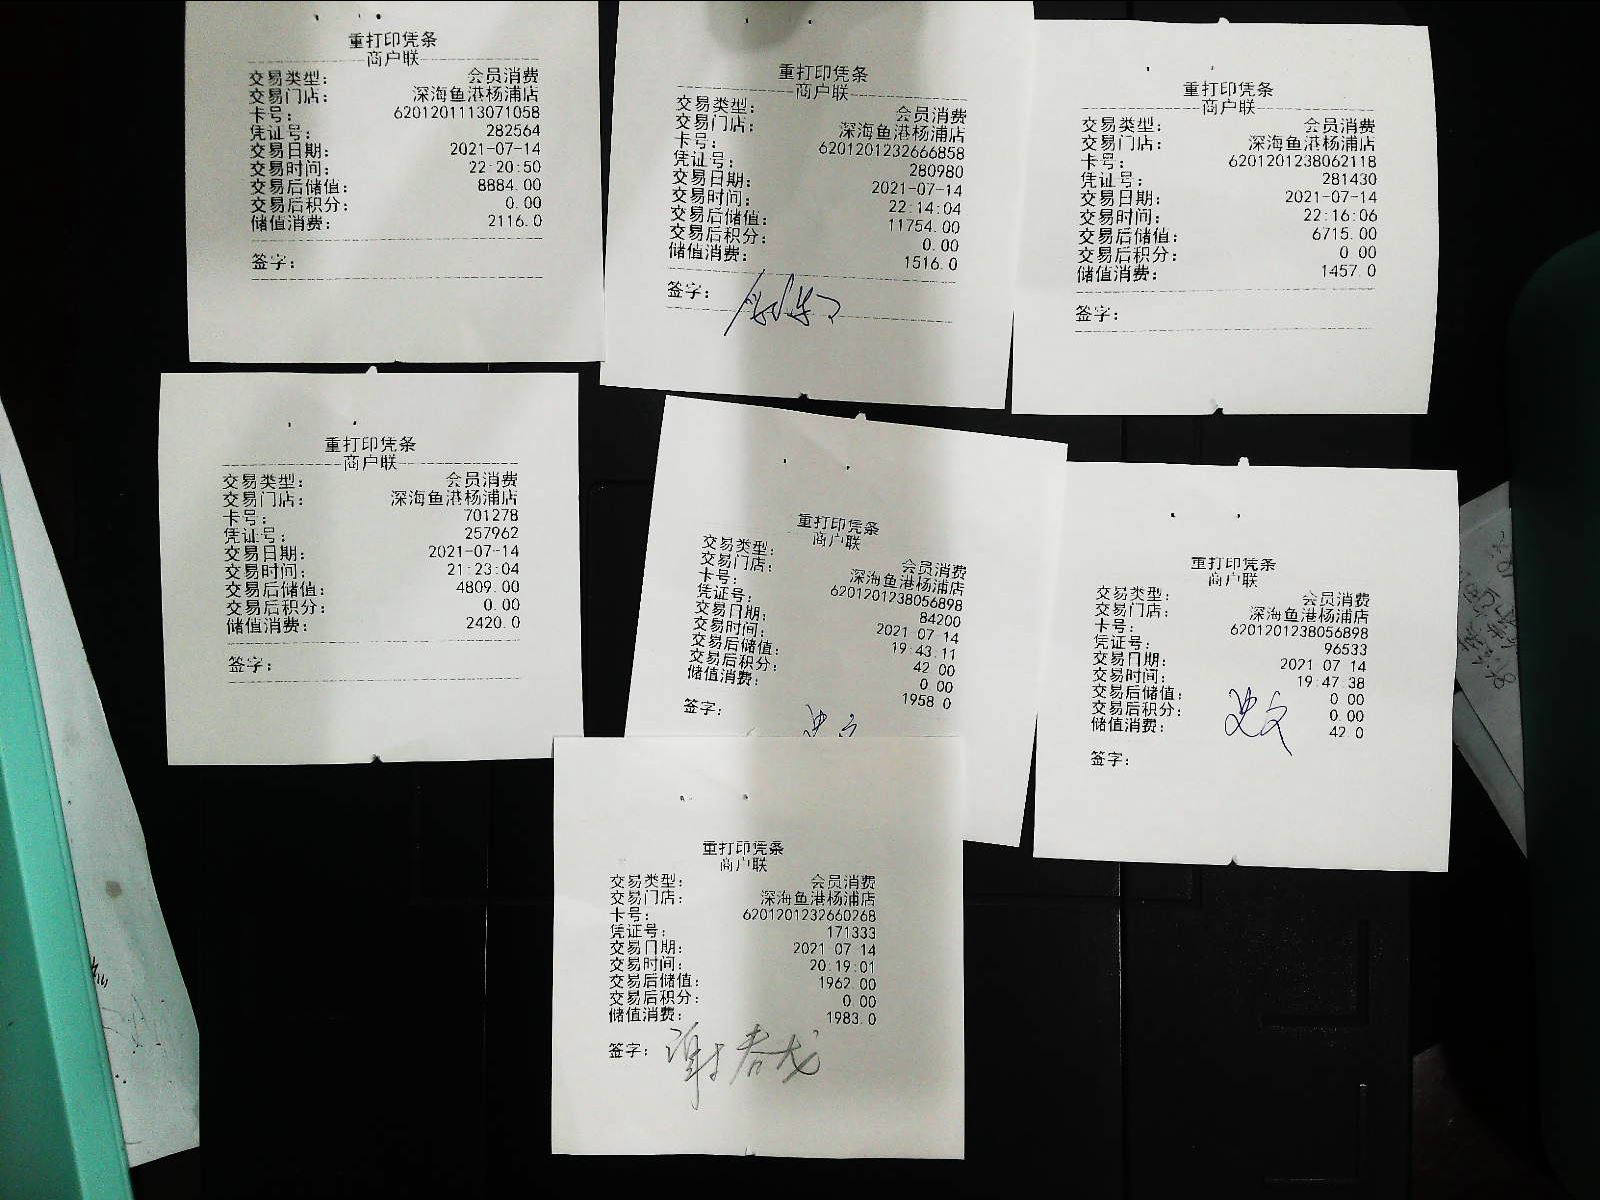 重打印凭条
商户联
交易类型: 会员消费
交易门店: 深海鱼港杨浦店
卡号: 6201201113071058
凭证号: 282564
交易日期: 2021-07-14
交易时间: 22:20:50
交易后储值: 8884.00
交易后积分: 0.00
储值消费: 2116.0
签字:
重打印凭条
商户联
交易类型: 会员消费
交易门店: 深海鱼港杨浦店
卡号: 6201201232666858
凭证号: 280980
交易日期: 2021-07-14
交易时间: 22:14:04
交易后储值: 11754.00
交易后积分: 0.00
储值消费: 1516.0
签字:
重打印凭条
商户联
交易类型: 会员消费
交易门店: 深海鱼港杨浦店
卡号: 6201201238062118
凭证号: 281430
交易日期: 2021-07-14
交易时间: 22:16:06
交易后储值: 6715.00
交易后积分: 0.00
储值消费: 1457.0
签字:
重打印凭条
商户联
交易类型: 会员消费
交易门店: 深海鱼港杨浦店
卡号: 701278
凭证号: 257962
交易日期: 2021-07-14
交易时间: 21:23:04
交易后储值: 4809.00
交易后积分: 0.00
储值消费: 2420.0
签字:
重打印凭条
商户联
交易类型: 会员消费
交易门店: 深海鱼港杨浦店
卡号: 6201201238056898
凭证号: 84200
交易日期: 2021 07 14
交易时间: 19:43:11
交易后储值: 42 00
交易后积分: 0 00
储值消费: 1958 0
签字: 史文
重打印凭条
商户联
交易类型: 会员消费
交易门店: 深海鱼港杨浦店
卡号: 6201201238056898
凭证号: 96533
交易日期: 2021 07 14
交易时间: 19 47 38
交易后储值: 0 00
交易后积分: 0.00
储值消费: 42 0
史文
签字:
重打印凭条
商户联
交易类型: 会员消费
交易门店: 深海鱼港杨浦店
卡号: 6201201232660268
凭证号: 171333
交易日期: 2021 07 14
交易时间: 20:19:01
交易后储值: 1962.00
交易后积分: 0 00
储值消费: 1983.0
签字: 谢春龙